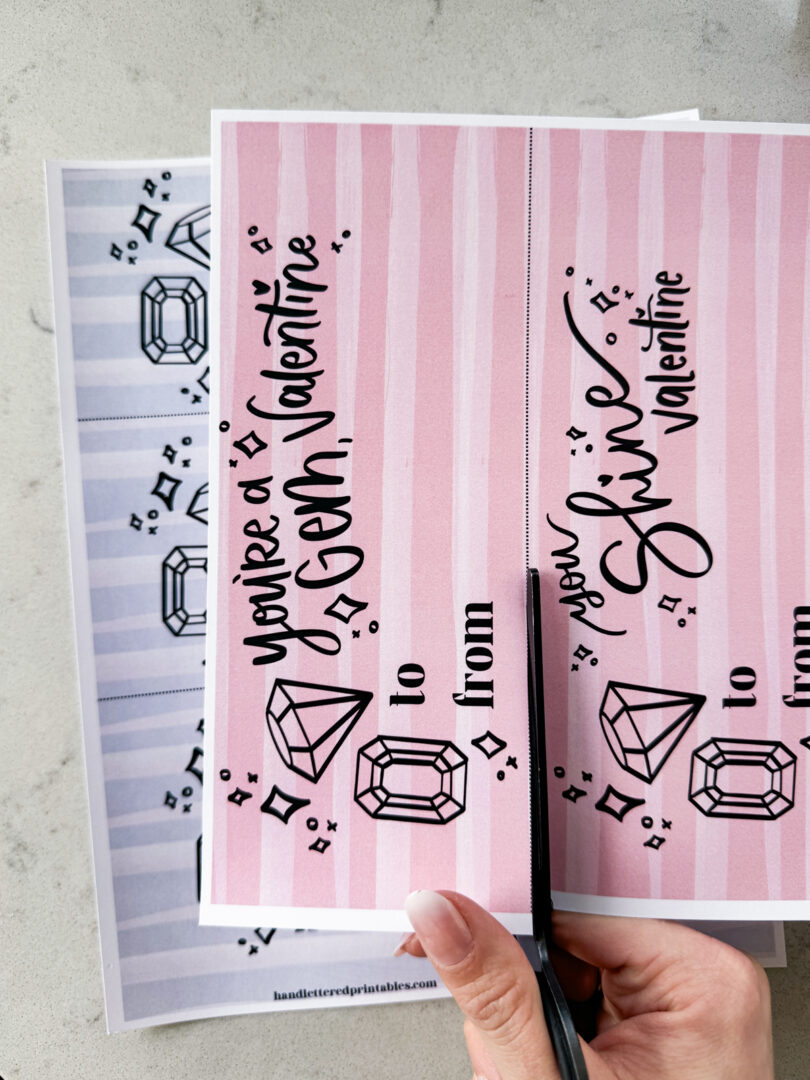 you're a
Gem, Valentine
to
from
you
Shine
valentine
to
from
from
handletteredprintables.com